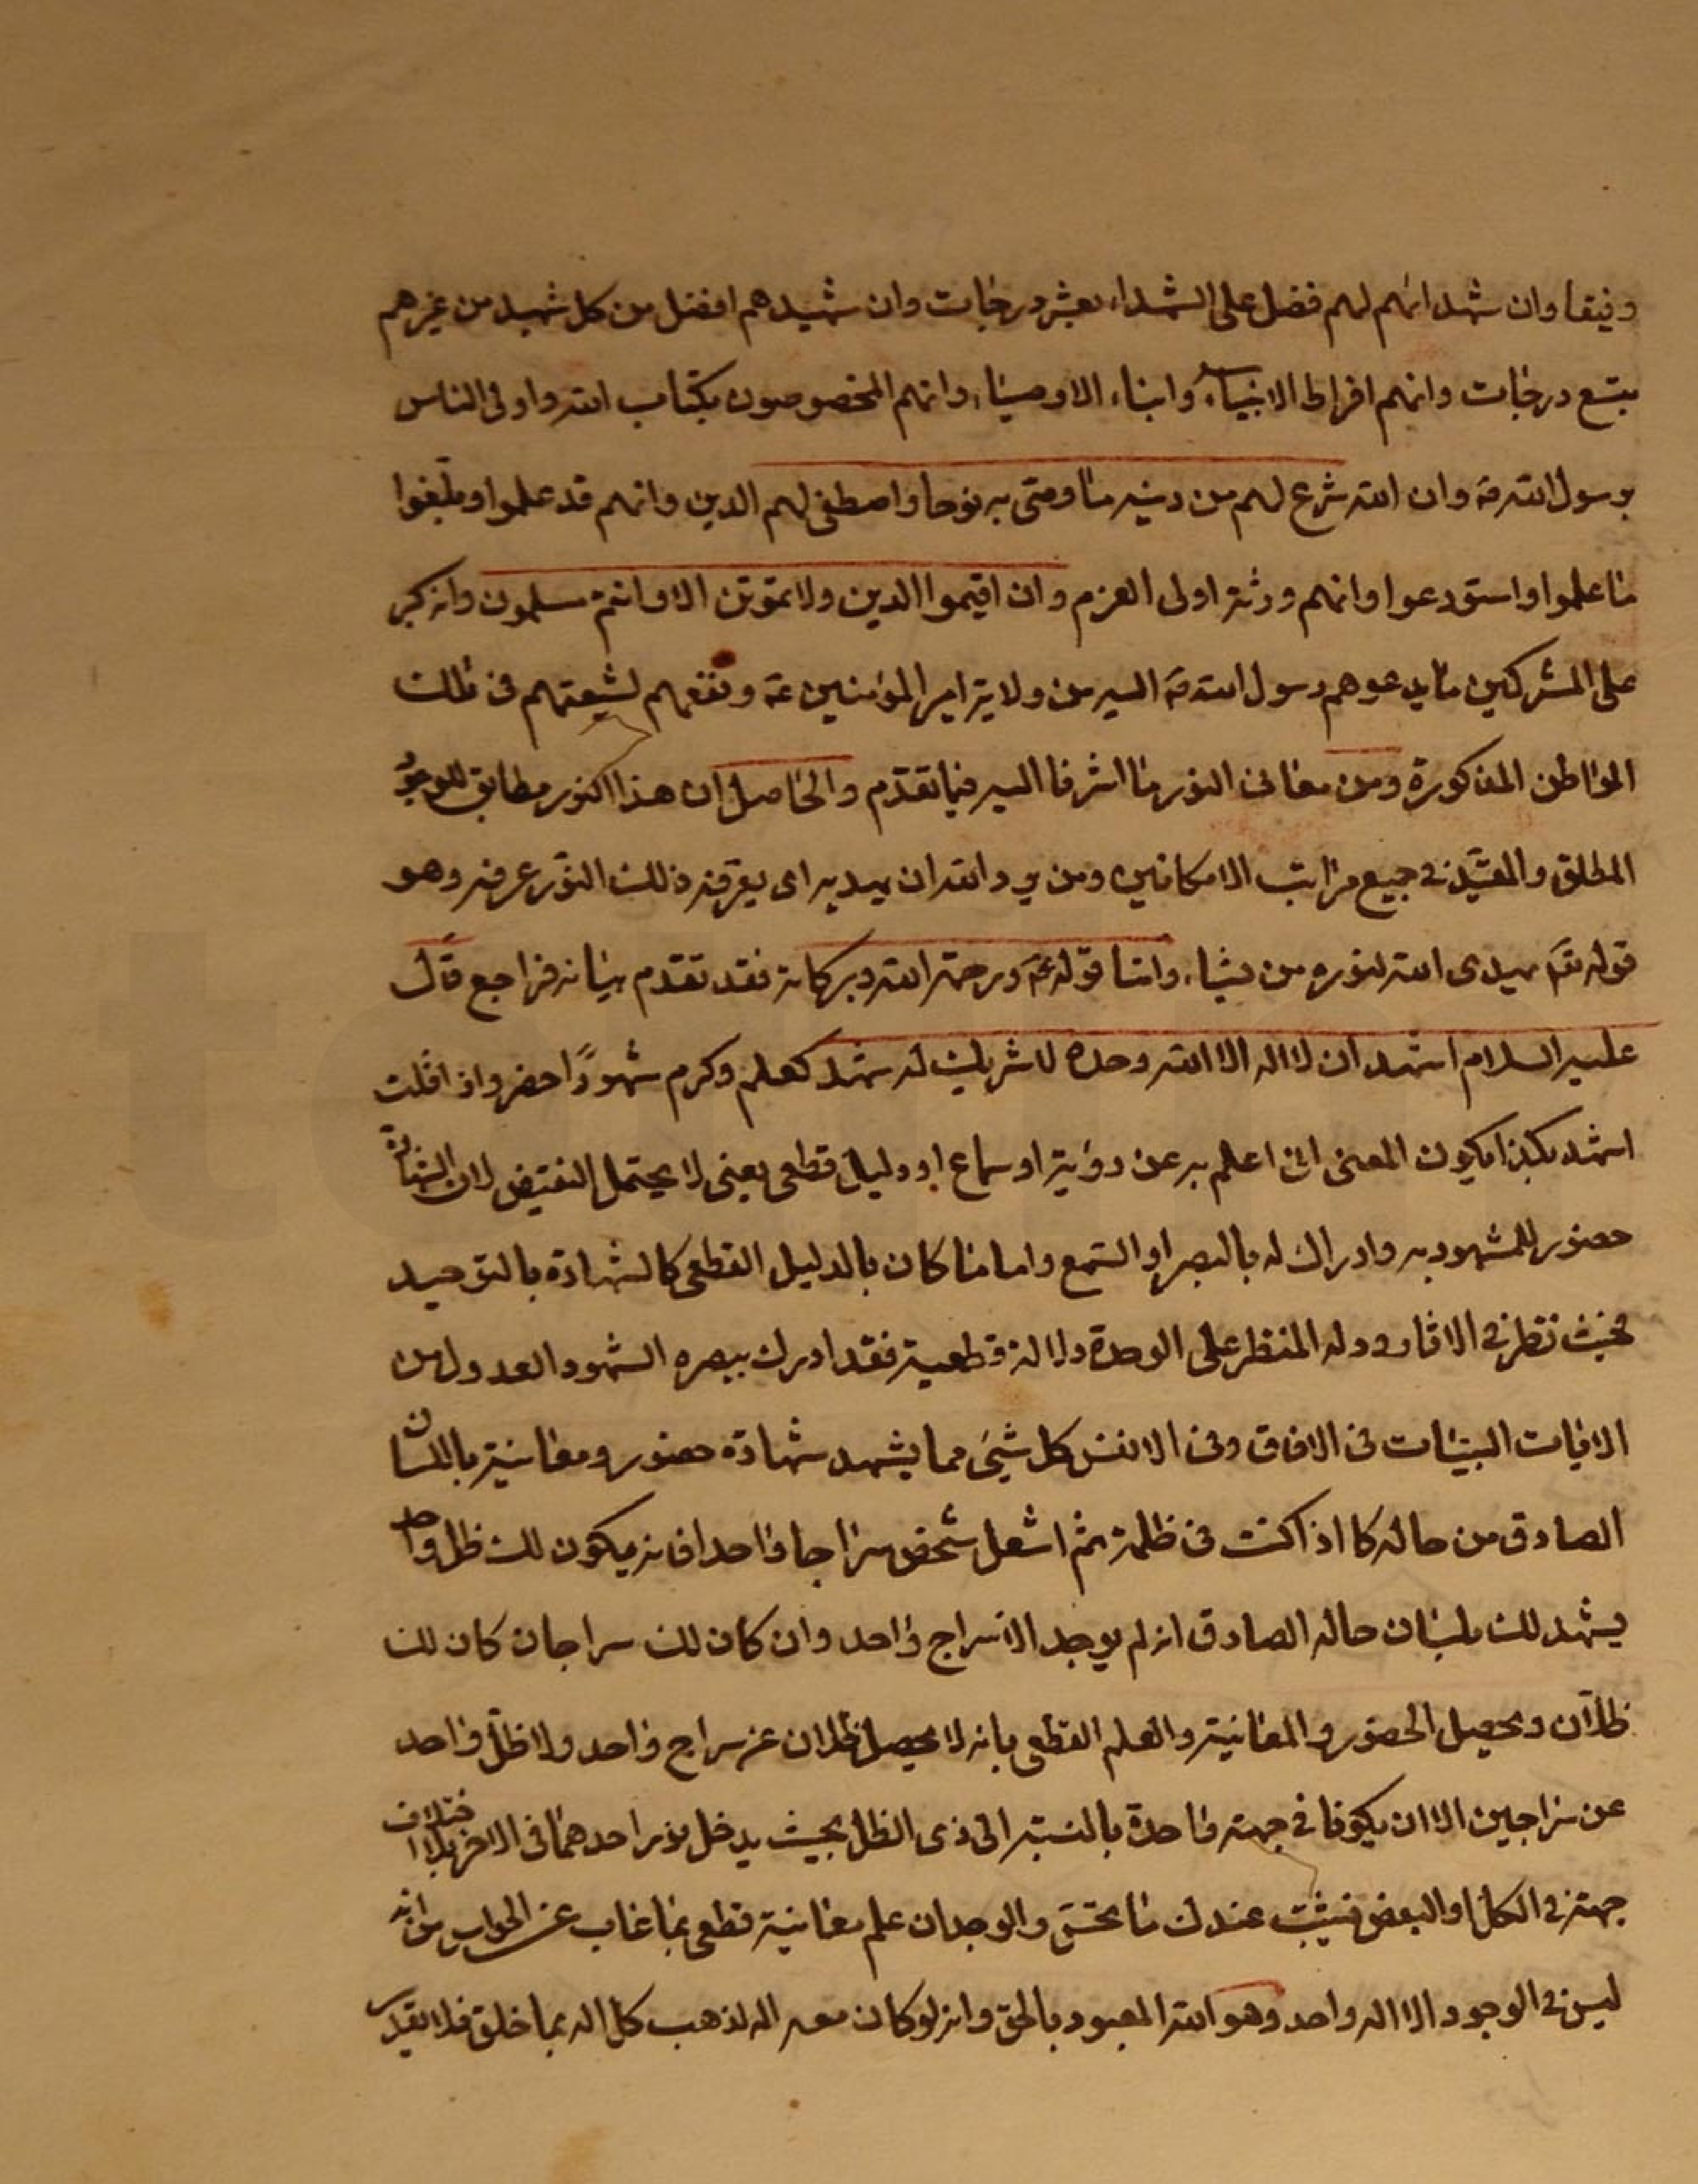 رفيقا وان شهدائهم لهم فضل على الشهداء بعشر درجات وان شهيدهم افضل من كل شهيد من غيرهم
بتسع درجات وانهم افراط الانبياء وابناء الاوصياء وانهم المخصوصون بكتاب الله واولى الناس
برسول الله صه وان الله شرع لهم من دينه ما وصى به نوحا واصطفى لهم الدين وانهم قد علموا وبلغوا
ما علموا واستودعوا وانهم ورثة اولى العزم وان اقيموا الدين ولا تموتن الا وانتم مسلمون وانه كبر
على المشركين ما يدعوهم رسول الله صه اليه من ولاية امير المؤمنين عه ونفعهم لشيعتهم فى تلك
المواطن المذكورة ومن معانى النور ما اشرنا اليه فيما تقدم والحاصل ان هذا النور مطابق للوجود
المطلق والمقيد فى جميع مراتب الامكانين ومن يرد الله ان يهديه اى يعرفه ذلك النور عرفه وهو
قوله تعه يهدى الله لنوره من يشاء واما قوله عه ورحمة الله وبركاته فقد تقدم بيانه فراجع قال
عليه السلام اشهد ان لا اله الا الله وحده لا شريك له شهد كعلم وكرم شهودًا حضر واذا قلت
اشهد بكذا يكون المعنى انى اعلم به عن رؤية او سماع او دليل قطعى يعنى لا يحتمل النقيض لان الشهادة
حضور للمشهود به وادراك له بالبصر او السمع واما ما كان بالدليل القطعى كالشهادة بالتوحيد
فحيث نظر فى الاثار ودله النظر على الوحدة دلالة قطعية فقد ادرك ببصره الشهود العدول من
الايات البينات فى الافاق وفى الانفس كل شيئ مما يشهد شهادة حضور ومعاينة باللسان
الصادق من حاله كما اذا كنت فى ظلمة ثم اشعل شخص سراجا واحدا فانه يكون لك ظل واحد
يشهد لك بلسان حاله الصادق انه لم يوجد الا سراج واحد وان كان لك سراجان كان لك
ظلان ويحصل الحضور والمعاينة والعلم القطعى بانه لا يحصل ظلان عن سراج واحد ولا ظل واحد
عن سراجين الا ان يكونا فى جهة واحدة بالنسبة الى ذى الظل بحيث يدخل نور احدهما فى الاخر بلا اختلاف
جهة فى الكل او البعض فيثبت عندك بالحس والوجدان علم معاينة قطعى بما غاب عن الحواس من انه
ليس فى الوجود الا اله واحد وهو الله المعبود بالحق وانه لو كان معه اله لذهب كل اله بما خلق فلا يقدر